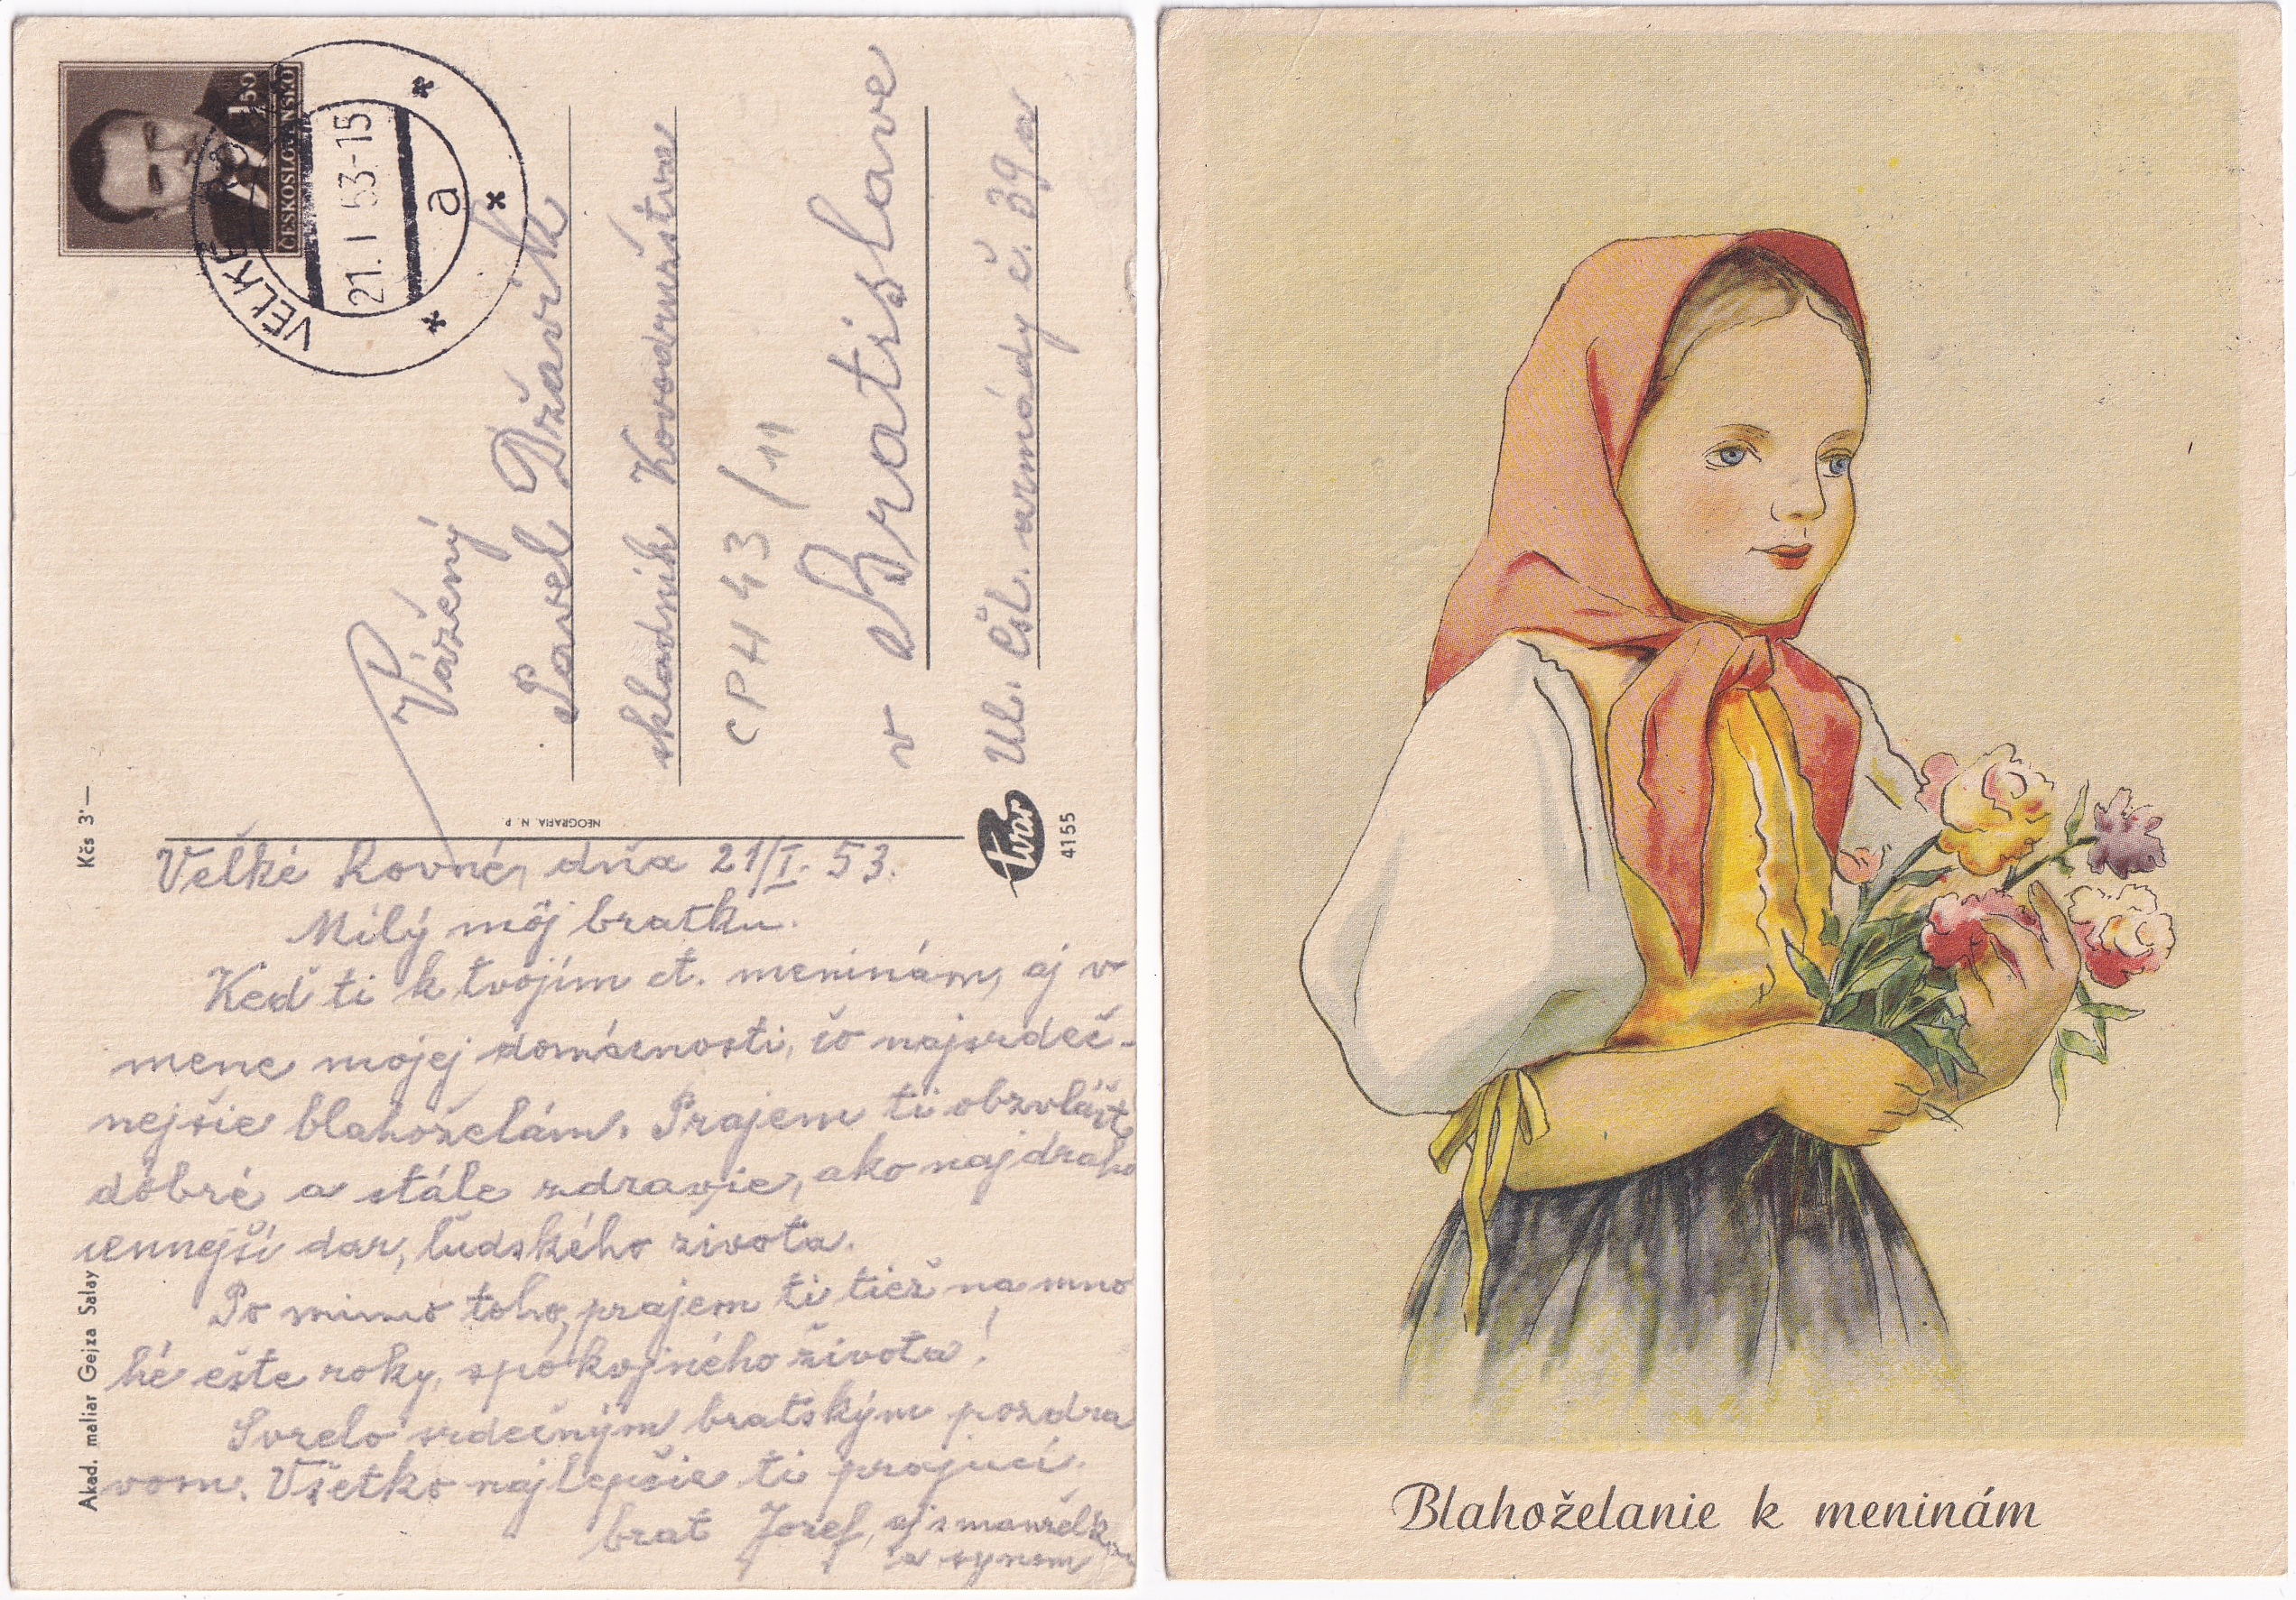 1·50
ČESKOSLOVENSKO
VEĽKÉ
21. I 53-15
a
Vážený
Pavel Državik
skladník Kovodružstva
CPH 43/11
v Bratislave
Ul. Čsl. armády č. 39 a
Kčs 3'—
NEOGRAFIA, N. P.
Tvar
4155
Akad. maliar Gejza Salay
Veľké Rovné, dňa 21/I. 53.
Milý môj bratku.
Keď ti k tvojím ct. meninám, aj v
mene mojej domácnosti, čo najsrdeč-
nejšie blahoželám. Prajem ti obzvlášť
dobré a stále zdravie, ako najdraho
cennejší dar, ľudského života.
Po mimo toho, prajem ti tiež na mno
hé ešte roky, spokojného života!
Svrelo srdečným bratským pozdra
vom. Všetko najlepšie ti prajúci.
brat Jozef, aj s manželkou
a synom
Blahoželanie k meninám